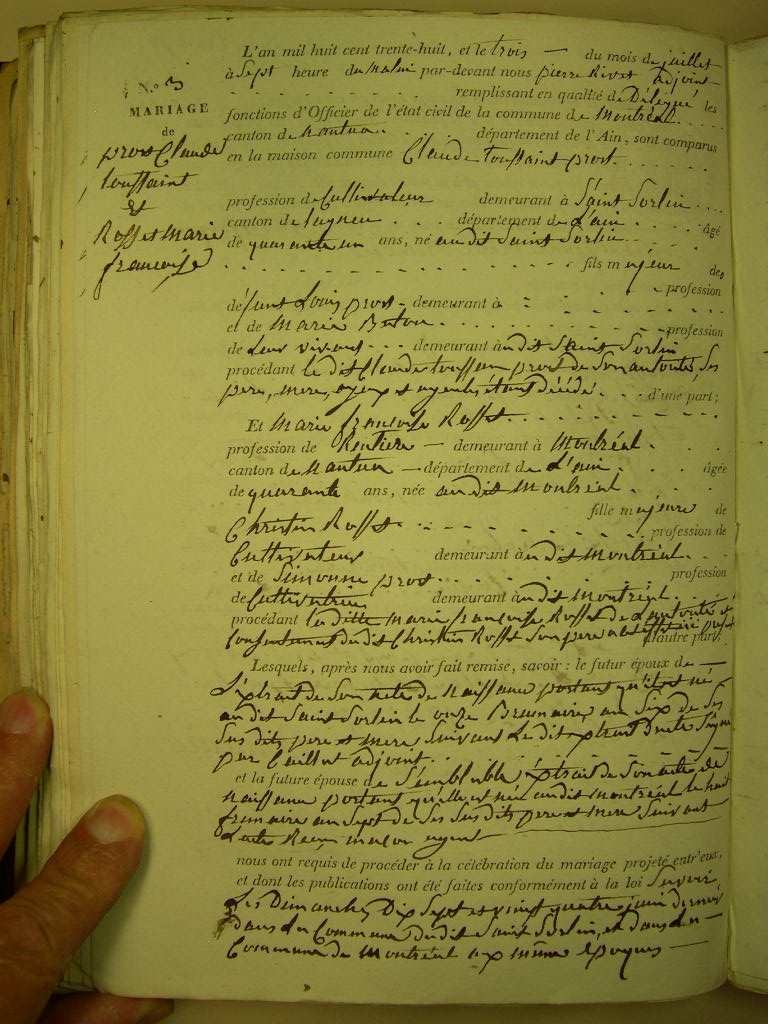 N.° 3
MARIAGE
de
prost Claude
toussaint
et
Rosset Marie
francoise
L'an mil huit cent trente-huit, et le trois du mois de juillet
à Sept heure du matin par-devant nous pierre Rivet adjoint
remplissant en qualité de Délégué les
fonctions d'Officier de l'état civil de la commune de Montréal
canton de nantua département de l'Ain, sont comparus
en la maison commune Claude toussaint prost
profession de Cultivateur demeurant à Saint Sorlin
canton de lagneu département de L'ain âgé
de quarante un ans, né au dit Saint Sorlin
fils majeur des
profession
défunt Louis prost demeurant à
et de Marie profession
de Leur vivant demeurant au dit Saint Sorlin
procédant le dit Claude toussain prost de Son autorité, Ses
pere, mere, ayeux et ayeules étant décédé d'une part;
Et Marie francoise Rosset
profession de Rentiere demeurant à Montréal
canton de Nantua département de L'ain âgée
de quarante ans, née au dit Montréal
fille majeure de
Christin Rosset profession de
Cultivateur demeurant au dit Montréal
et de Simonne prost profession
de Cultivatrice demeurant au dit Montréal
procédant la ditte Marie francoise Rosset de L'autorité et
Consentement du dit Christin Rosset Son pere d'autre part.
Lesquels, après nous avoir fait remise, savoir : le futur époux de
L'extrait de Son acte de Naissance portant qu'il est né
au dit Saint Sorlin le onze Brumaire an Six de Ses
Sus dits pere et mere Suivant Le dit extrait d'acte Signé
par Caillot adjoint
et la future épouse de Semblable extrait de Son acte de
Naissance portant qu'elle est née au dit Montréal le huit
frimaire an Sept de Ses Sus dits pere et mere Suivant
L'acte Recu
nous ont requis de procéder à la célébration du mariage projeté entr'eux,
et dont les publications ont été faites conformément à la loi Savoir
Les Dimanches Dix Sept et vingt quatre juin dernier
dans La Commune du dit Saint Sorlin, et dans La
Commune de Montréal aux même Epoques